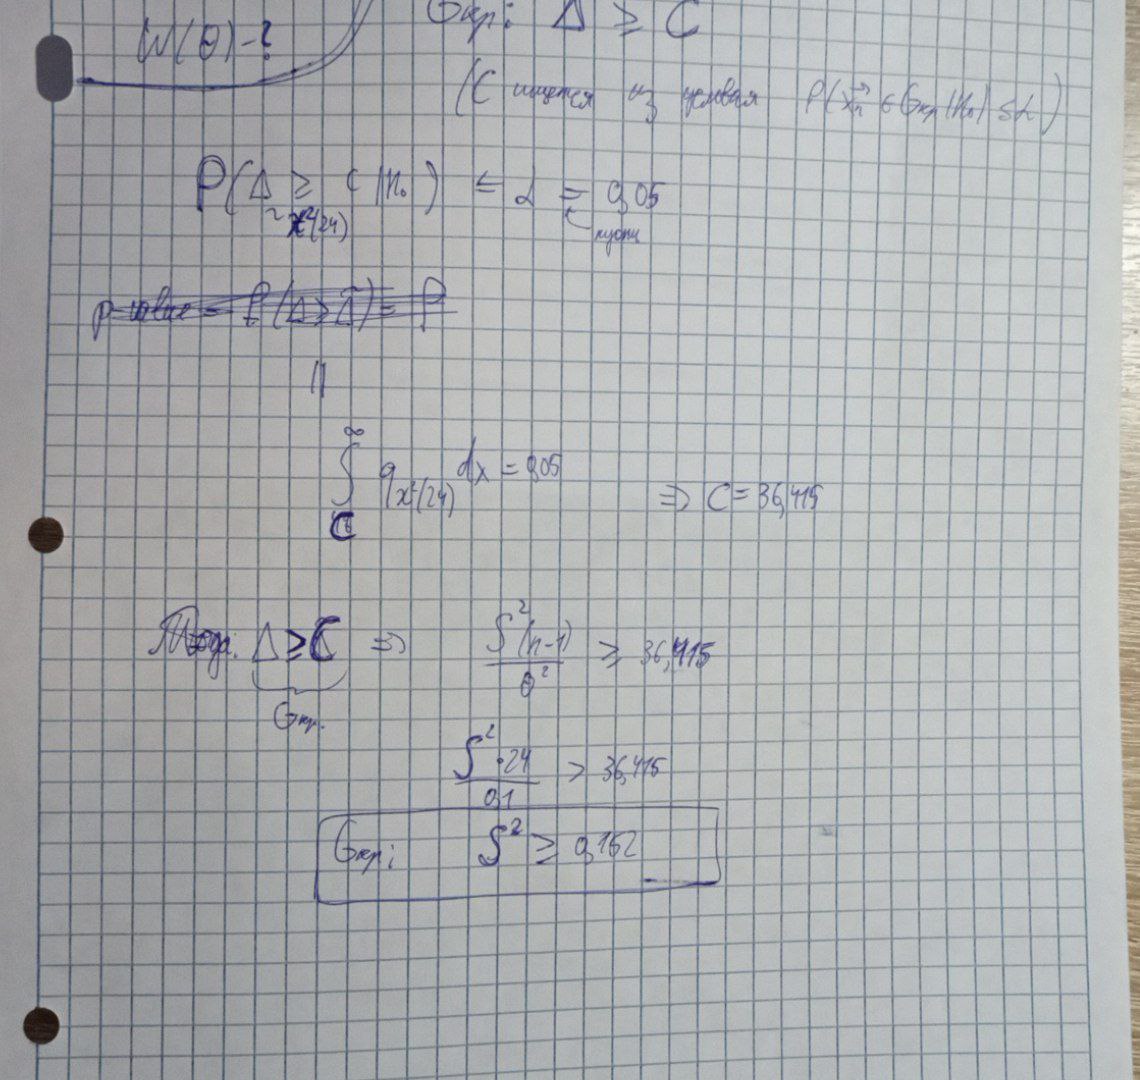 W(θ)-?
Gкр: Δ ≥ C
(C ищется из условия P(x⃗n ∈ Gкр | H₀) ≤ α)
P(Δ ≥ C | H₀) ≤ α = 0,05
~χ²(24)
p-value = P(Δ ≥ Δ̃) = P
||
∫_C^∞ q_χ²(24) dx = 0,05 ⇒ C = 36,415
Тогда: Δ ≥ C ⇒ S²(n-1)/θ² ≥ 36,415
Gкр.
S²·24/0,1 > 36,415
Gкр: S² ≥ 0,152